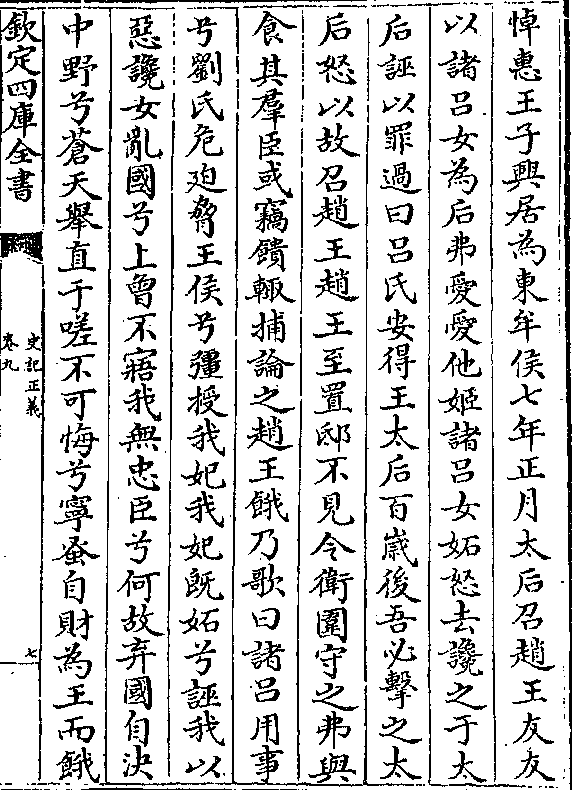 悼惠王子興居為東牟侯七年正月太后召趙王友友
以諸吕女為后弗愛愛他姬諸吕女妬怒去讒之于太
后誣以罪過曰吕氏安得王太后百嵗後吾必擊之太
后怒以故召趙王趙王至置邸不見令衛圍守之弗與
食其羣臣或竊饋輙捕論之趙王餓乃歌曰諸吕用事
兮劉氏危廹脅王侯兮彊授我妃我妃既妬兮誣我以
惡讒女亂國兮上曾不寤我無忠臣兮何故弃國自决
中野兮蒼天舉直于嗟不可悔兮寧蚤自財為王而餓
欽定四庫全書
史記正義
卷九
七